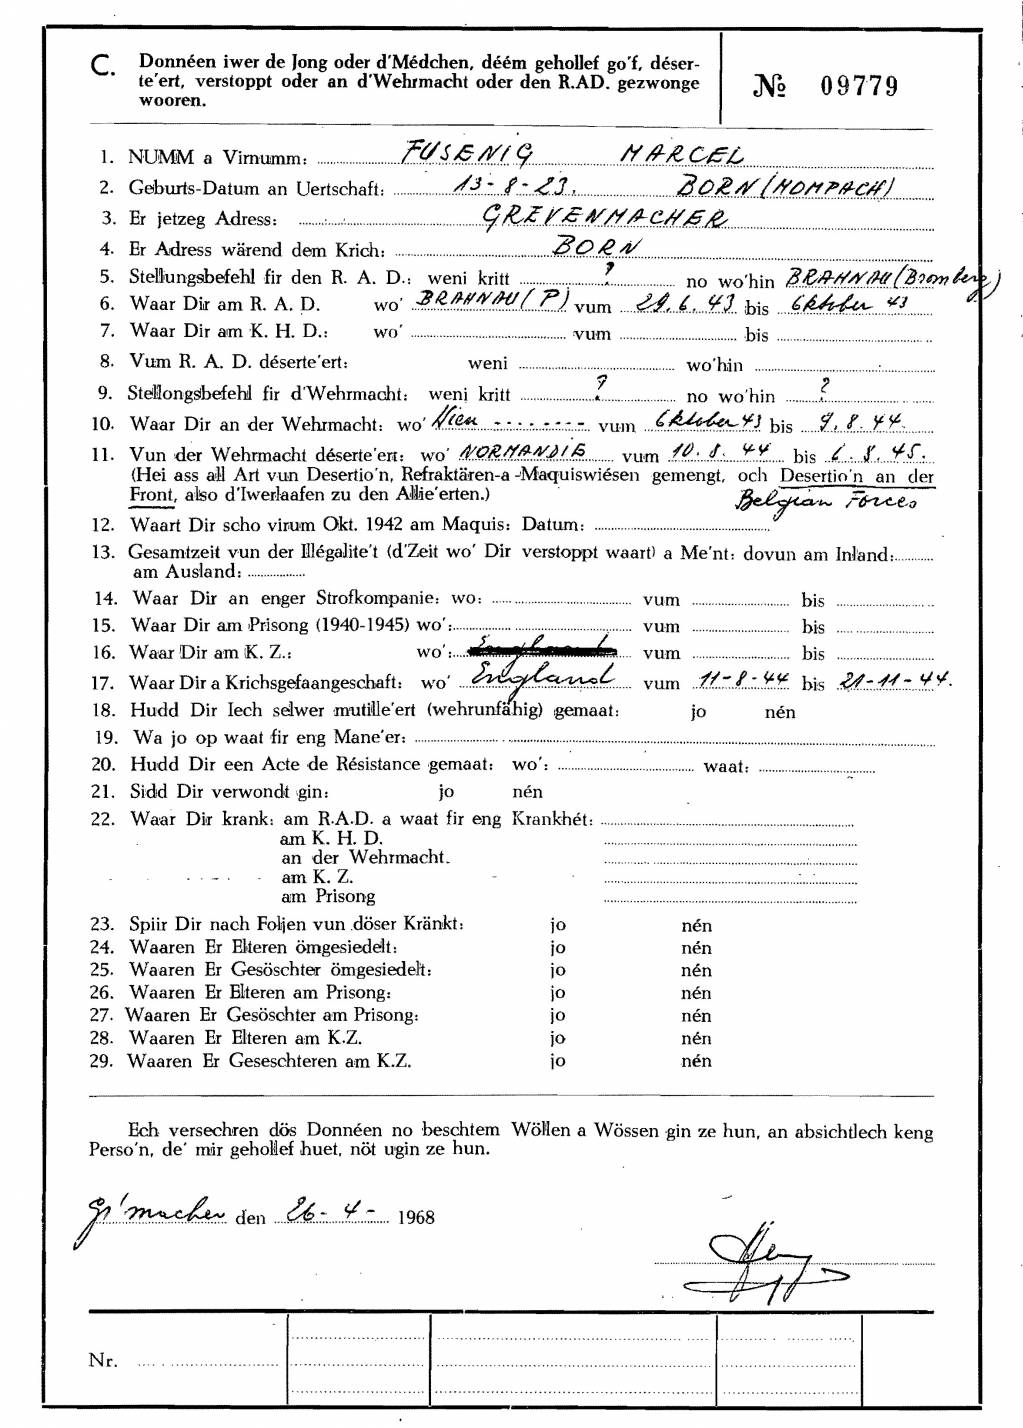 C. Donnéen iwer de Jong oder d'Médchen, déém gehollef go'f, déser-
te'ert, verstoppt oder an d'Wehrmacht oder den R.AD. gezwonge
wooren.
№ 09779
1. NUMM a Virnumm: FUSENIG MARCEL
2. Geburts-Datum an Uertschaft: 13-8-23. BORN (MOMPACH)
3. Er jetzeg Adress: GREVENMACHER
4. Er Adress wärend dem Krich: BORN
5. Stellungsbefehl fir den R. A. D.: weni kritt ? no wo'hin BRAHNAU (Bromberg)
6. Waar Dir am R. A. D. wo' BRAHNAU (P) vum 29.6.43 bis Oktober 43
7. Waar Dir am K. H. D.: wo' vum bis
8. Vum R. A. D. déserte'ert: weni wo'hin
9. Stellongsbefehl fir d'Wehrmacht: weni kritt ? no wo'hin ?
10. Waar Dir an der Wehrmacht: wo' Wien - - - - - - - - vum Oktober 43 bis 9.8.44.
11. Vun der Wehrmacht déserte'ert: wo' NORMANDIE vum 10.8.44 bis 6.8.45.
(Hei ass all Art vun Desertio'n, Refraktären-a -Maquiswiésen gemengt, och Desertio'n an der
Front, also d'Iwerlaafen zu den Allie'erten.) Belgian Forces
12. Waart Dir scho virum Okt. 1942 am Maquis: Datum:
13. Gesamtzeit vun der Illégalite't (d'Zeit wo' Dir verstoppt waart) a Me'nt: dovun am Inland:
am Ausland:
14. Waar Dir an enger Strofkompanie: wo: vum bis
15. Waar Dir am Prisong (1940-1945) wo': vum bis
16. Waar Dir am K. Z.: wo': vum bis
17. Waar Dir a Krichsgefaangeschaft: wo' England vum 11-8-44 bis 21-11-44.
18. Hudd Dir Iech selwer mutille'ert (wehrunfähig) gemaat: jo nén
19. Wa jo op waat fir eng Mane'er:
20. Hudd Dir een Acte de Résistance gemaat: wo': waat:
21. Sidd Dir verwondt gin: jo nén
22. Waar Dir krank: am R.A.D. a waat fir eng Krankhét:
am K. H. D.
an der Wehrmacht.
am K. Z.
am Prisong
23. Spiir Dir nach Foljen vun döser Kränkt: jo nén
24. Waaren Er Elteren ömgesiedelt: jo nén
25. Waaren Er Gesöschter ömgesiedelt: jo nén
26. Waaren Er Elteren am Prisong: jo nén
27. Waaren Er Gesöschter am Prisong: jo nén
28. Waaren Er Elteren am K.Z. jo nén
29. Waaren Er Geseschteren am K.Z. jo nén
Ech versechren dös Donnéen no beschtem Wöllen a Wössen gin ze hun, an absichtlech keng
Perso'n, de' mir gehollef huet, nöt ugin ze hun.
Gr'macher den 26-4- 1968
Nr.